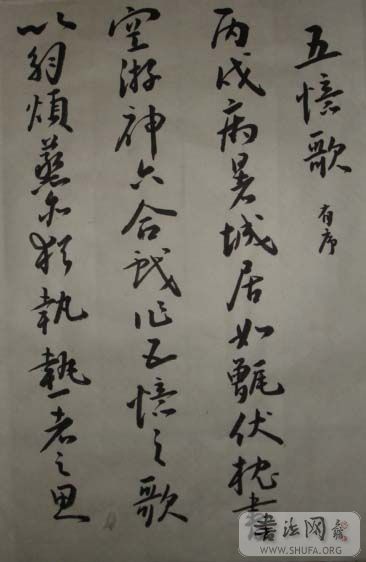 五憶歌 有序
丙戌病暑城居如甑伏枕書
空游神六合戲作五憶之歌
以紓煩蒸亦猶執熱者之思
書法网
WWW.SHUFA.ORG